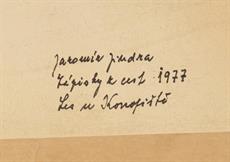 Jaromír Jindra
Zápisky z cest 1977
Les u Konopiště